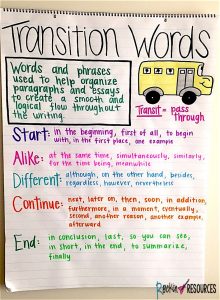 Transition Words
Words and phrases
used to help organize
paragraphs and essays
to create a smooth and
logical flow throughout
the writing.
Transit = pass
through
Start: in the beginning, first of all, to begin
with, in the first place, one example
Alike: at the same time, simultaneously, similarly,
for the time being, meanwhile
Different: although, on the other hand, besides,
regardless, however, nevertheless
Continue: next, later on, then, soon, in addition,
furthermore, in a moment, eventually,
second, another reason, another example,
afterward
End: in conclusion, last, so you can see,
in short, in the end, to summarize,
finally
Rockin RESOURCES